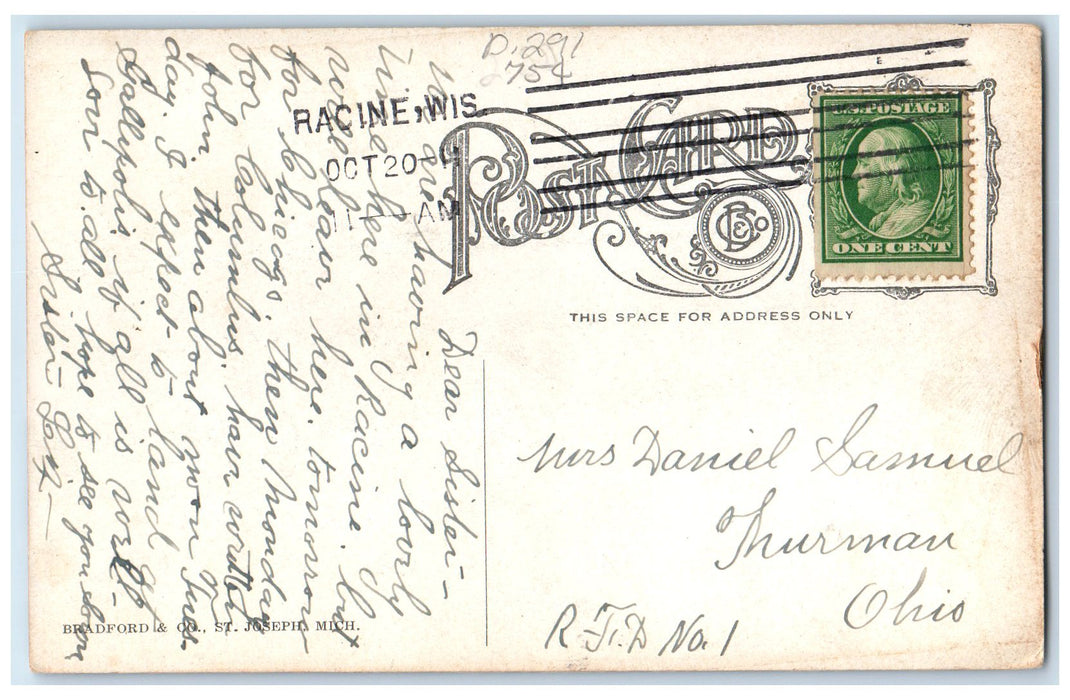 D.291
75¢
RACINE, WIS.
OCT 20-
11 — AM
POST CARD
B & Co
U.S. POSTAGE
ONE CENT
THIS SPACE FOR ADDRESS ONLY
Dear Sister –
We are having a lovly
time here in Racine. but
will leave here tomorrow
for Chicog. then Monday
for Columbus, have written
John then about noon Tues-
day. I expect to land
Gallipolis if all is well –
Love to all hope to see you soon
Sister
Mrs Daniel Samuel
Thurman
Ohio
R.F.D No. 1
BRADFORD & CO., ST. JOSEPH, MICH.